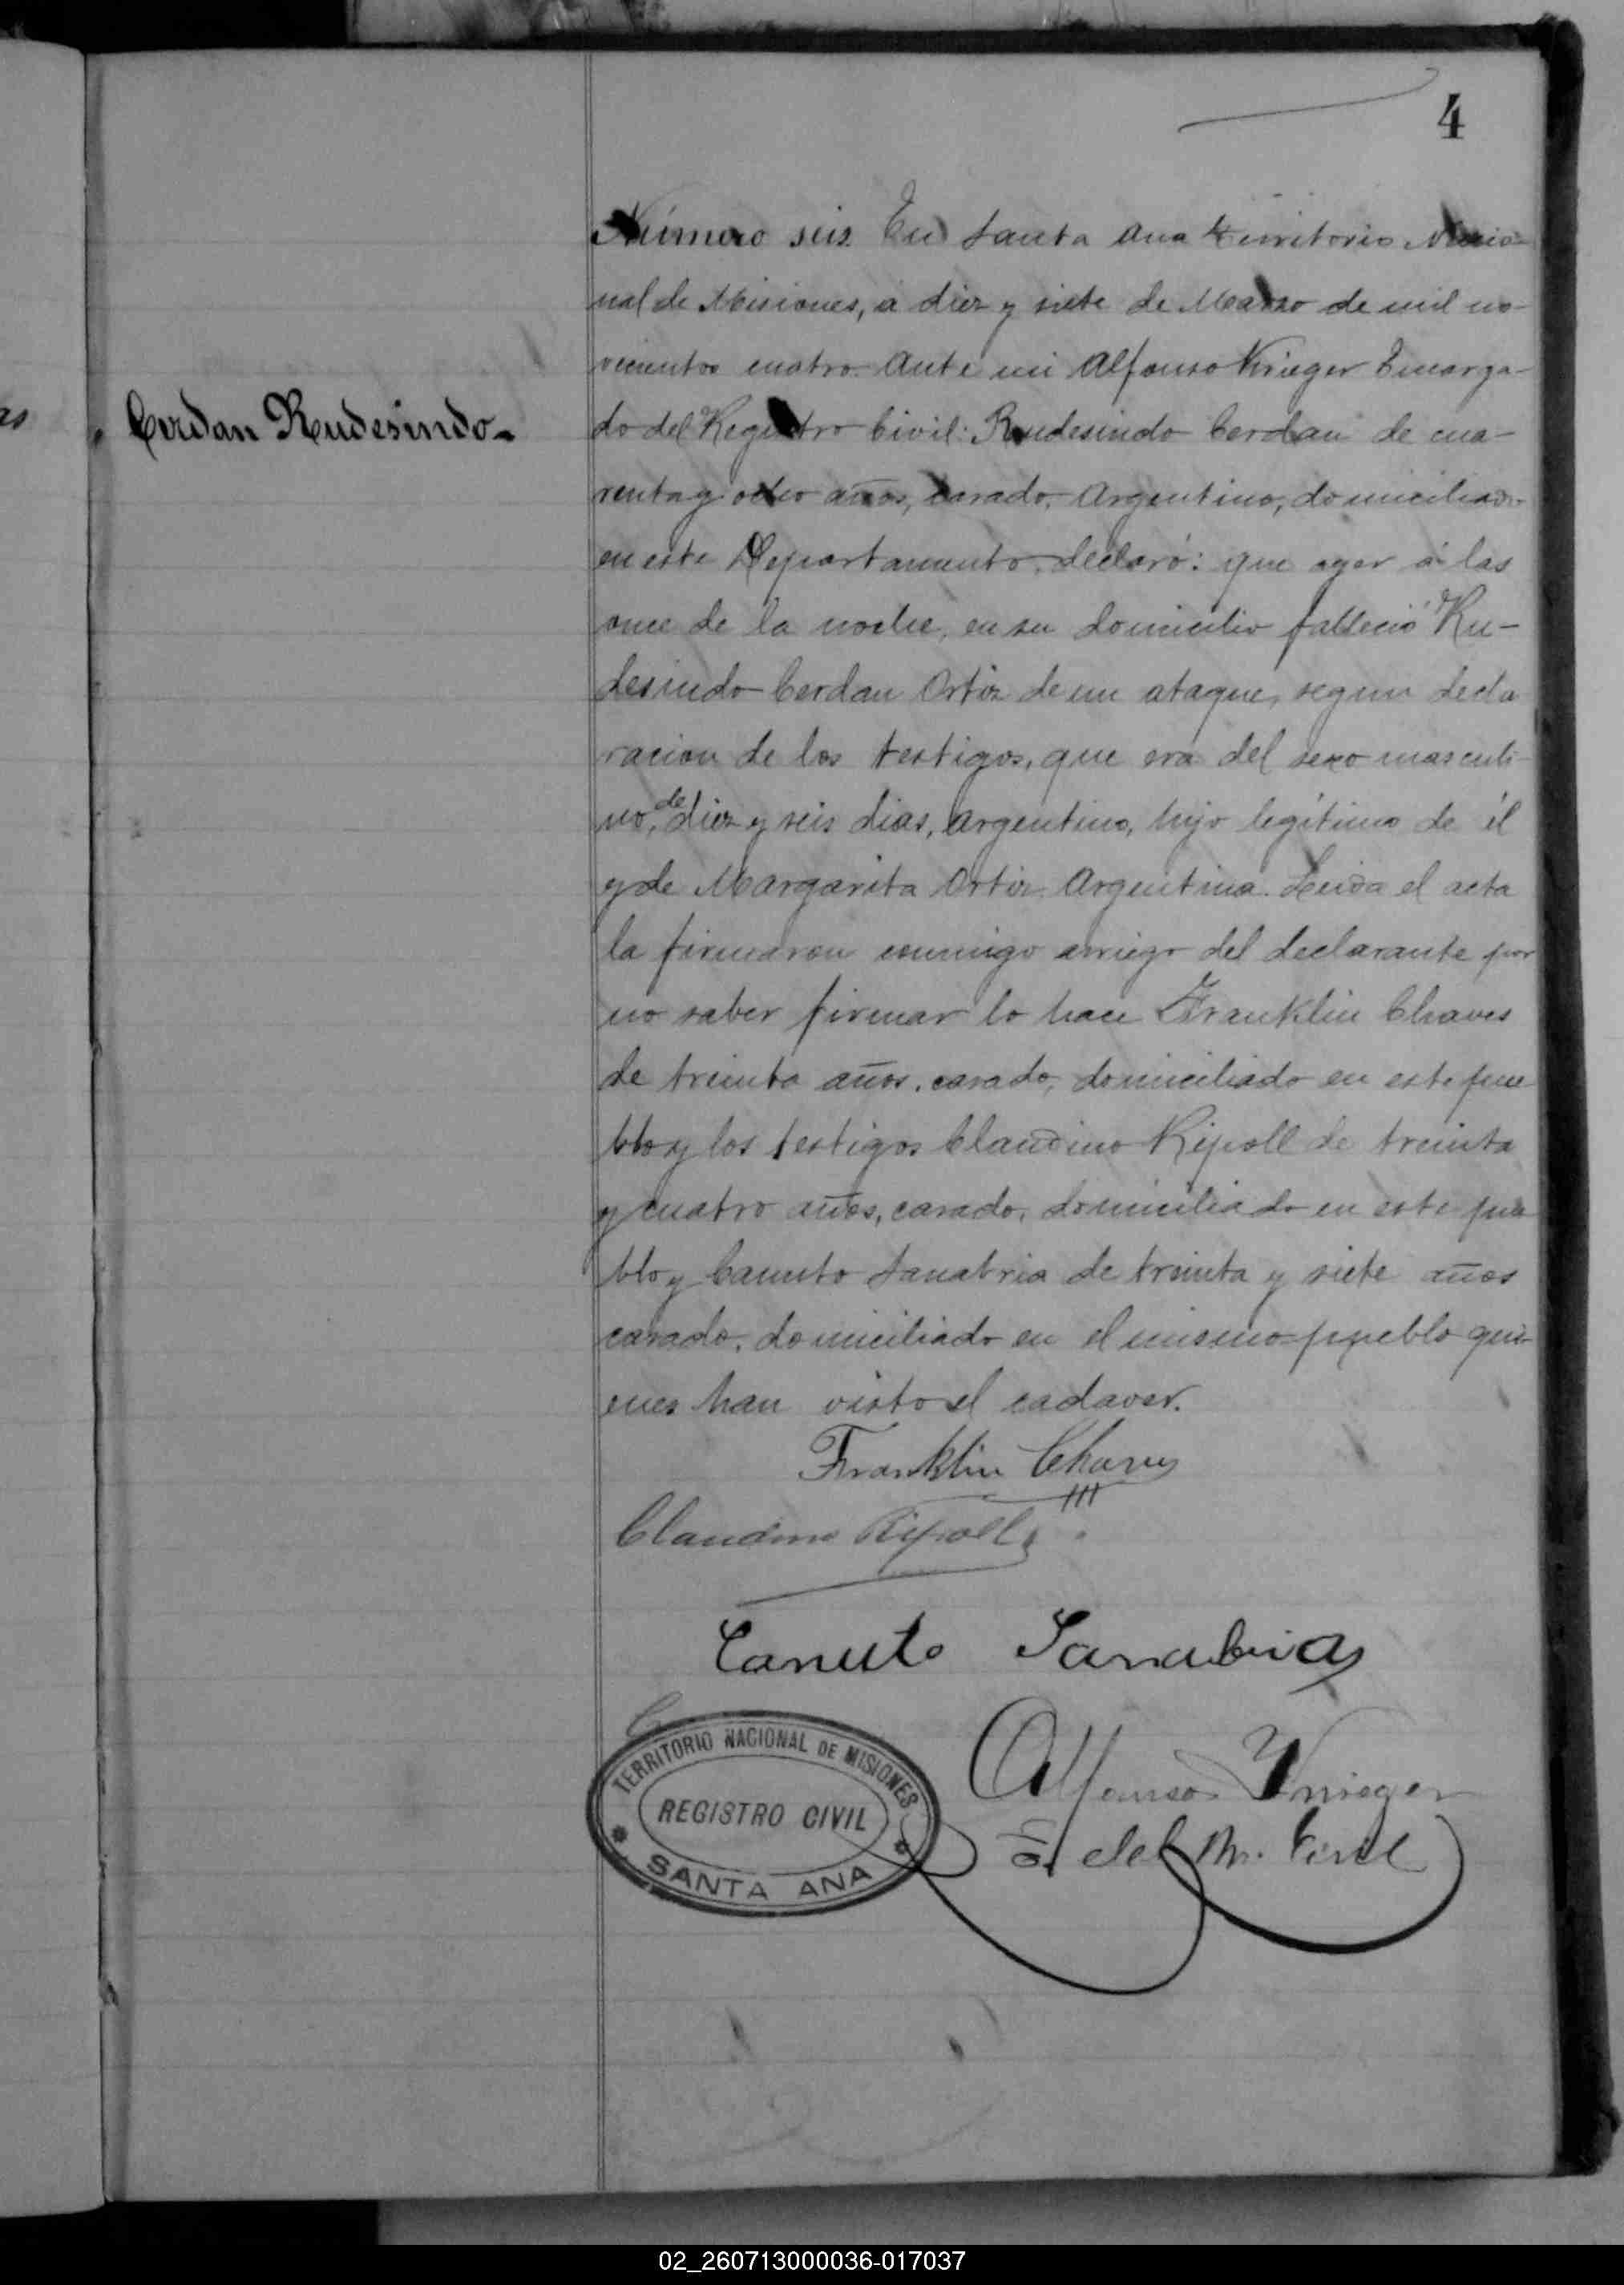 4
as
Cerdan Rudesindo
Número seis En Santa Ana Territorio Nacio-
nal de Misiones, á diez y siete de Marzo de mil no-
vecientos cuatro. Ante mi Alfonso Krieger Encarga-
do del Registro Civil: Rudesindo Cerdan de cua-
renta y ocho años, casado, Argentino, domiciliado
en este Departamento, declaró: que ayer á las
once de la noche, en su domicilio falleció Ru-
desindo Cerdan Ortiz de un ataque, segun decla
racion de los testigos, que era del sexo masculi-
no, de diez y seis dias, Argentino, hijo legítimo de él
y de Margarita Ortiz Argentina. Leida el acta
la firmaron conmigo arruego del declarante por
no saber firmar lo hace Franklin Chaves
de treinta años, casado, domiciliado en este pue
blo y los testigos Claudino Ripoll de treinta
y cuatro años, casado, domiciliado en este pue
blo y Canuto Sanabria de treinta y siete años
casado, domiciliado en el mismo pueblo qui-
enes han visto el cadaver.
Franklin Chaves
Claudino Ripoll
Canuto Sanabria
Alfonso Krieger
del Civil
TERRITORIO NACIONAL DE MISIONES
REGISTRO CIVIL
SANTA ANA
02_260713000036-017037